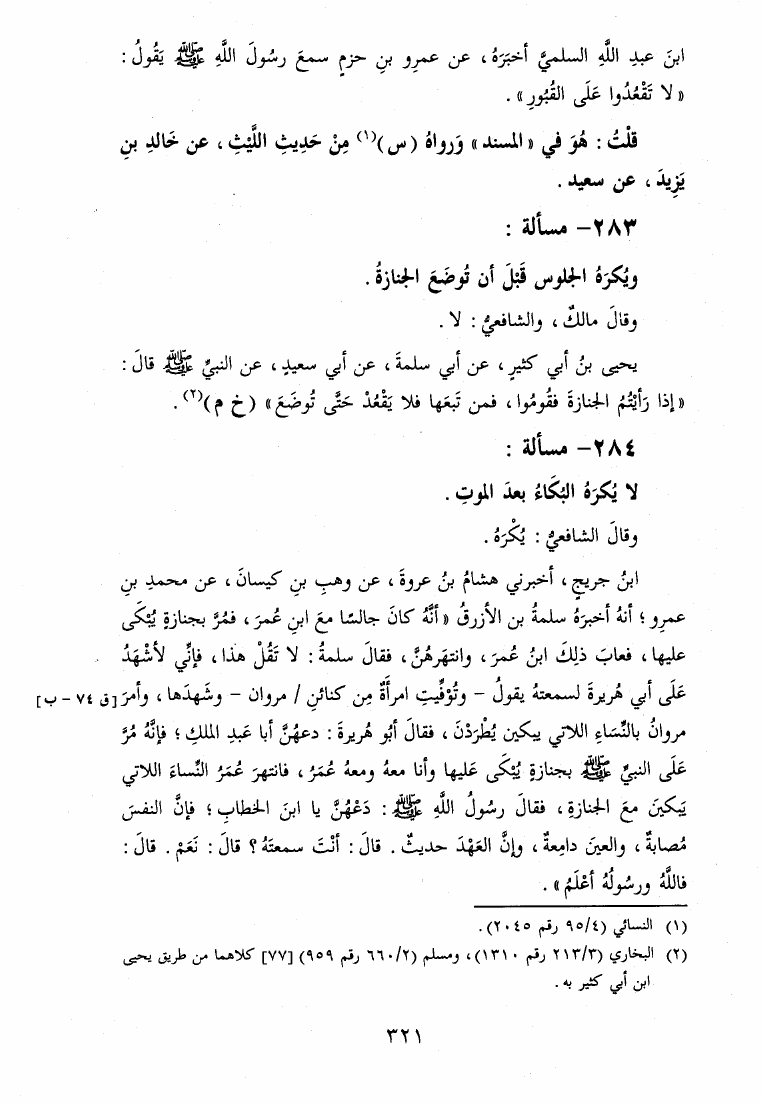 ابنَ عبدِ اللَّهِ السلميَّ أخبَرَهُ، عن عمرِو بنِ حزمٍ سمعَ رسُولَ اللَّهِ ﷺ يَقُولُ:
«لا تَقْعُدُوا عَلَى القُبُورِ».
قلْتُ: هُوَ في «المسند» وَرواهُ (س)(١) مِنْ حَدِيثِ اللَّيْثِ، عن خَالدِ بنِ
يَزِيدَ، عن سعيد.
٢٨٣- مسألة:
ويُكرَهُ الجلوس قَبْلَ أن تُوضَعَ الجنازةُ.
وقالَ مالكٌ، والشافعيُّ: لا.
يحيى بنُ أبي كثيرٍ، عن أبي سلمةَ، عن أبي سعيدٍ، عن النبيِّ ﷺ قالَ:
«إذا رَأيْتُمُ الجنازةَ فقُومُوا، فمن تَبعَها فلا يَقْعُدْ حَتَّى تُوضَعَ» (خ م)(٢).
٢٨٤- مسألة:
لا يُكرَهُ البُكَاءُ بعدَ الموتِ.
وقالَ الشافعيُّ: يُكْرَهُ.
ابنُ جريجٍ، أخبرني هشامُ بنُ عروةَ، عن وهبِ بنِ كيسانَ، عن محمدِ بنِ
عمرٍو؛ أنهُ أخبَرَهُ سلمةُ بن الأزرقُ «أنَّهُ كانَ جالسًا معَ ابنِ عُمرَ، فمُرَّ بجنازةٍ يُبْكَى
عليها، فعابَ ذلِكَ ابنُ عُمرَ، وانتهَرهُنَّ، فقالَ سلمةُ: لا تَقُلْ هذا، فإنِّي لأشْهَدُ
عَلَى أبي هُريرةَ لسمعتهُ يقولُ - وتُوفِّيتِ امرأَةٌ مِن كنائنِ / مروان - وشَهِدَها، وأمرَ [ق ٧٤ - ب]
مروانُ بالنِّسَاءِ اللاتي يبكين يُطْرَدْنَ، فقالَ أبُو هُريرةَ: دعهُنَّ أبا عَبدِ الملكِ؛ فإنَّهُ مُرَّ
عَلَى النبيِّ ﷺ بجنازةٍ يُبْكَى عَليها وأنا معهُ ومعهُ عُمَرُ، فانتهرَ عُمَرُ النِّساءَ اللاتي
يَبكينَ معَ الجنازةِ، فقالَ رسُولُ اللَّهِ ﷺ: دَعْهُنَّ يا ابنَ الخطابِ؛ فإنَّ النفسَ
مُصابةٌ، والعينَ دامِعةٌ، وإنَّ العَهْدَ حديثٌ. قالَ: أنْتَ سمعتَهُ؟ قالَ: نَعَمْ. قالَ:
فاللَّهُ ورسُولُهُ أعْلَمُ».
(١) النسائي (٤/٩٥ رقم ٢٠٤٥).
(٢) البخاري (٣/٢١٣ رقم ١٣١٠)، ومسلم (٢/٦٦٠ رقم ٩٥٩) [٧٧] كلاهما من طريق يحيى
ابن أبي كثير به.
٣٢١